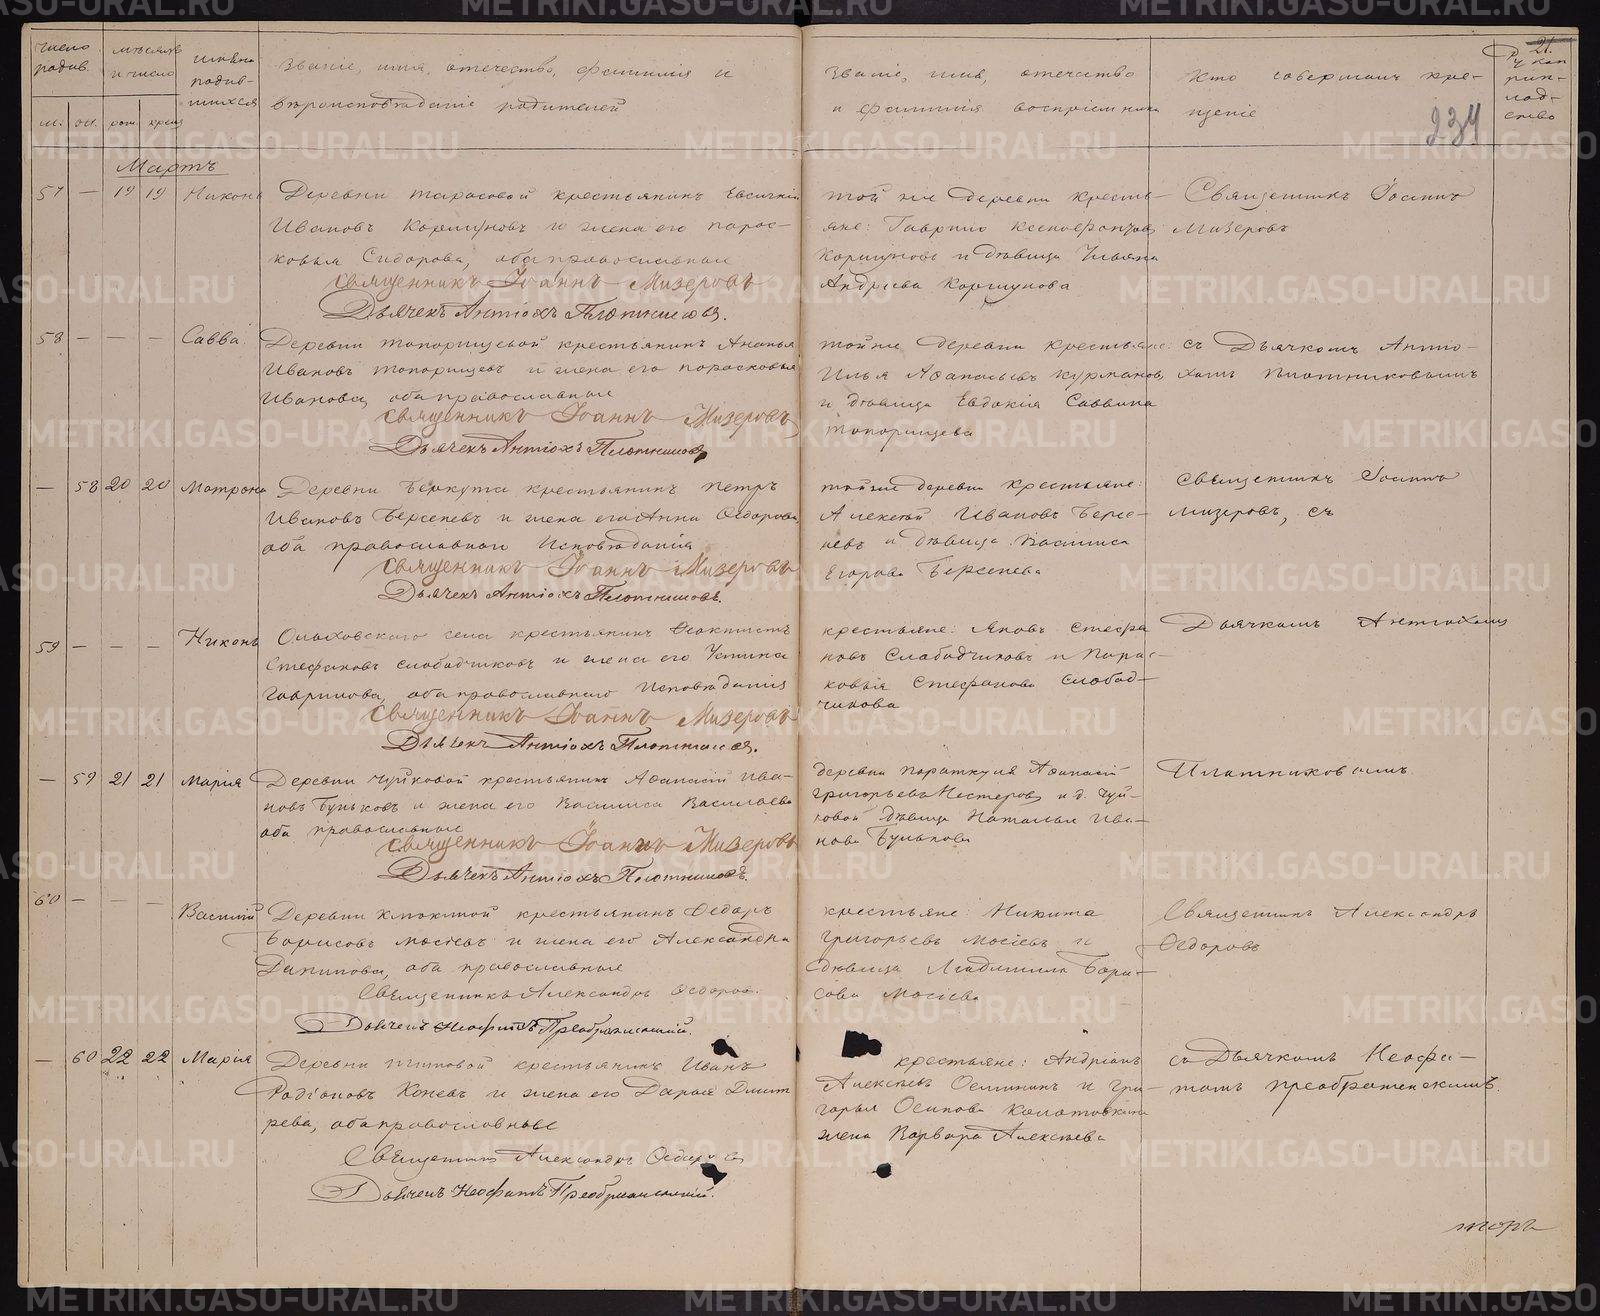 число родив.
мѣсяцъ и число
имена родив-
шихся
Званіе, имя, отечество, фамилія и
вѣроисповѣданіе родителей
Званіе, имя, отчество
и фамилія воспріемника
Кто совершалъ кре-
щеніе
Рукоп
рик-
лад-
ство
21.
234
м. ж. рож. крещ
Мартъ
57 — 19 19 Никонъ
Деревни Тарасовой крестьянинъ Евсигній
Ивановъ Коршуновъ и жена его Парас-
ковья Сидорова, оба православные
Священникъ Іоаннъ Мизеровъ
Дьячекъ Антіохъ Плотниковъ.
той же деревни кресть-
яне: Гаврило Ксенофонтовъ
Коршуновъ и дѣвица Ульяна
Андреева Коршунова
Священникъ Іоаннъ
Мизеровъ
58 — — — Савва.
Деревни Топорищевой крестьянинъ Ананья
Ивановъ Топорищевъ и жена его Парасковья
Иванова, оба православные
Священникъ Іоаннъ Мизеровъ
Дьячекъ Антіохъ Плотниковъ
тойже деревни крестьяне:
Илья Афанасьевъ Курмановъ,
и дѣвица Евдокія Саввина
Топорищева
съ Дьячкомъ Антіо-
хомъ Плотниковымъ
— 58 20 20 Матрона
Деревни Беркута крестьянинъ Петръ
Ивановъ Берсеневъ и жена его Анна Ѳедорова,
оба православнаго Исповѣданія
Священникъ Іоаннъ Мизеровъ
Дьячекъ Антіохъ Плотниковъ.
тойже деревни крестьяне:
Алексѣй Ивановъ Берсе-
невъ и дѣвица Василиса
Егорова Берсенева
Священникъ Іоаннъ
Мизеровъ, съ
59 — — — Никонъ
Ольховскаго села крестьянинъ Ѳеоктистъ
Стефановъ Слободчиковъ и жена его Устина
Гаврилова, оба православнаго Исповѣданія
Священникъ Іоаннъ Мизеровъ
Дьячекъ Антіохъ Плотниковъ.
крестьяне: Яковъ Стефа
новъ Слободчиковъ и Парас-
ковья Стефанова Слобод-
чикова
Дьячкомъ Антіохомъ
— 59 21 21 Марія
Деревни Чуйковой крестьянинъ Афанасій Ива-
новъ Буньковъ и жена его Василиса Васильева
оба православные
Священникъ Іоаннъ Мизеровъ
Дьячекъ Антіохъ Плотниковъ.
деревни Параткуля Афанасій
Григорьевъ Нестеровъ и д. Чуй-
ковой дѣвица Наталья Ива-
нова Бунькова
Плотниковымъ.
60 — — — Василій
Деревни Клюкиной крестьянинъ Ѳедоръ
Борисовъ Мосѣевъ и жена его Александра
Данилова, оба православные
Священникъ Александръ Ѳедоровъ.
Дьячекъ Неофитъ Преображенскій.
крестьяне: Никита
Григорьевъ Мосѣевъ и
дѣвица Людмила Бори-
сова Мосѣева
Священникъ Александръ
Ѳедоровъ
— 60 22 22 Марія
Деревни Титовой крестьянинъ Иванъ
Родіоновъ Коневъ и жена его Дарья Дмит
рева, оба православные
Священникъ Александръ Ѳедоровъ
Дьячекъ Неофитъ Преображенскій.
крестьяне: Андріанъ
Алексѣевъ Осминикъ и Гри-
горья Осипова Колотовкина
жена Варвара Алексѣева
съ Дьячкомъ Неофи-
томъ Преображенскимъ.
METRIKI.GASO-URAL.RU